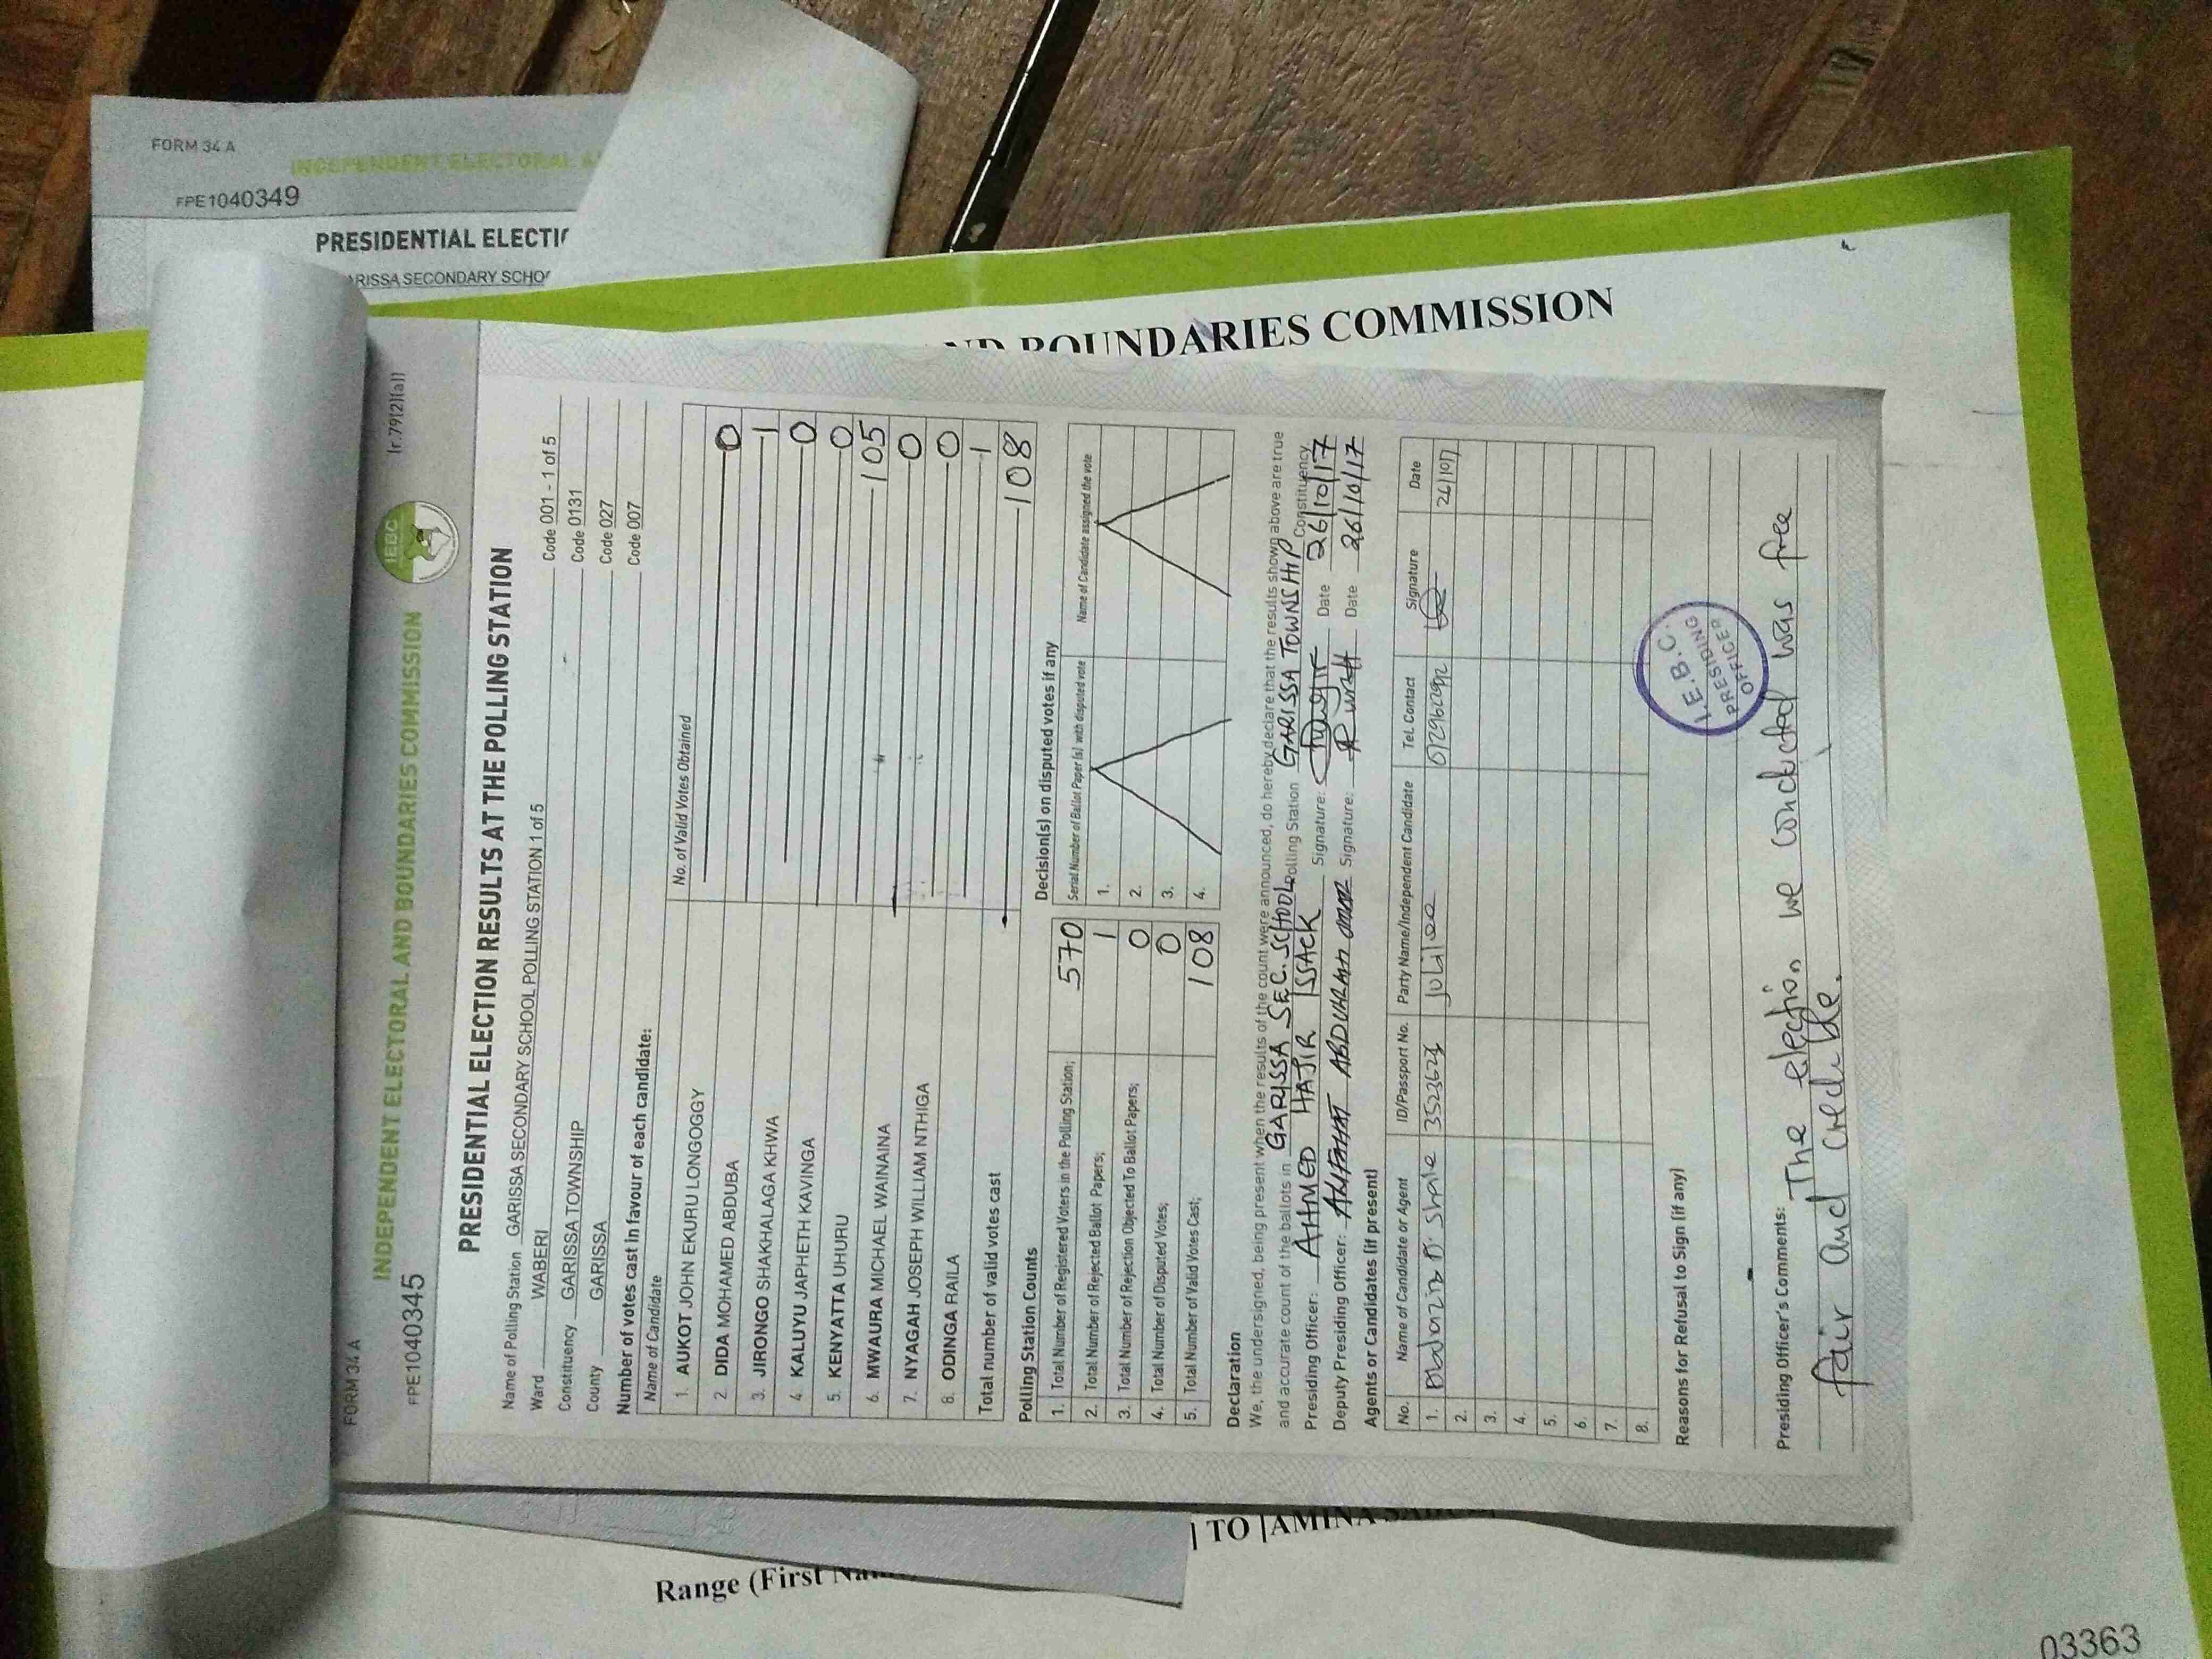 FORM 34 A
FPE1040349
INDEPENDENT ELECTORAL A
PRESIDENTIAL ELECTI
ARISSA SECONDARY SCHO
ND BOUNDARIES COMMISSION
FORM 34 A
(r.79(2)(a))
INDEPENDENT ELECTORAL AND BOUNDARIES COMMISSION
IEBC
FPE1040345
PRESIDENTIAL ELECTION RESULTS AT THE POLLING STATION
Name of Polling Station GARISSA SECONDARY SCHOOL POLLING STATION 1 of 5 Code 001 - 1 of 5
Ward WABERI Code 0131
Constituency GARISSA TOWNSHIP Code 027
County GARISSA Code 007
Number of votes cast in favour of each candidate:
Name of Candidate No. of Valid Votes Obtained
1. AUKOT JOHN EKURU LONGOGGY 0
2. DIDA MOHAMED ABDUBA 1
3. JIRONGO SHAKHALAGA KHWA 0
4. KALUYU JAPHETH KAVINGA 0
5. KENYATTA UHURU 105
6. MWAURA MICHAEL WAINAINA 0
7. NYAGAH JOSEPH WILLIAM NTHIGA 0
8. ODINGA RAILA 1
Total number of valid votes cast 108
Polling Station Counts
1. Total Number of Registered Voters in the Polling Station; 570
2. Total Number of Rejected Ballot Papers; 1
3. Total Number of Rejection Objected To Ballot Papers; 0
4. Total Number of Disputed Votes; 0
5. Total Number of Valid Votes Cast; 108
Decision(s) on disputed votes if any
Serial Number of Ballot Paper (s) with disputed vote Name of Candidate assigned the vote
1.
2.
3.
4.
Declaration
We, the undersigned, being present when the results of the count were announced, do hereby declare that the results shown above are true
and accurate count of the ballots in GARISSA SEC. SCHOOL Polling Station GARISSA TOWNSHIP Constituency.
Presiding Officer: AHMED HAJIR ISSACK Signature: Date 26/10/17
Deputy Presiding Officer: ABDURHAMAN Signature: Date 26/10/17
Agents or Candidates (if present)
No. Name of Candidate or Agent ID/Passport No. Party Name/Independent Candidate Tel. Contact Signature Date
1. D. Shale Jubilee
2.
3.
4.
5.
6.
7.
8.
Reasons for Refusal to Sign (if any)
I.E.B.C.
PRESIDING
OFFICER
Presiding Officer's Comments: The election we conducted was free
fair and credible.
Range (First Na
TO AMINA
03363